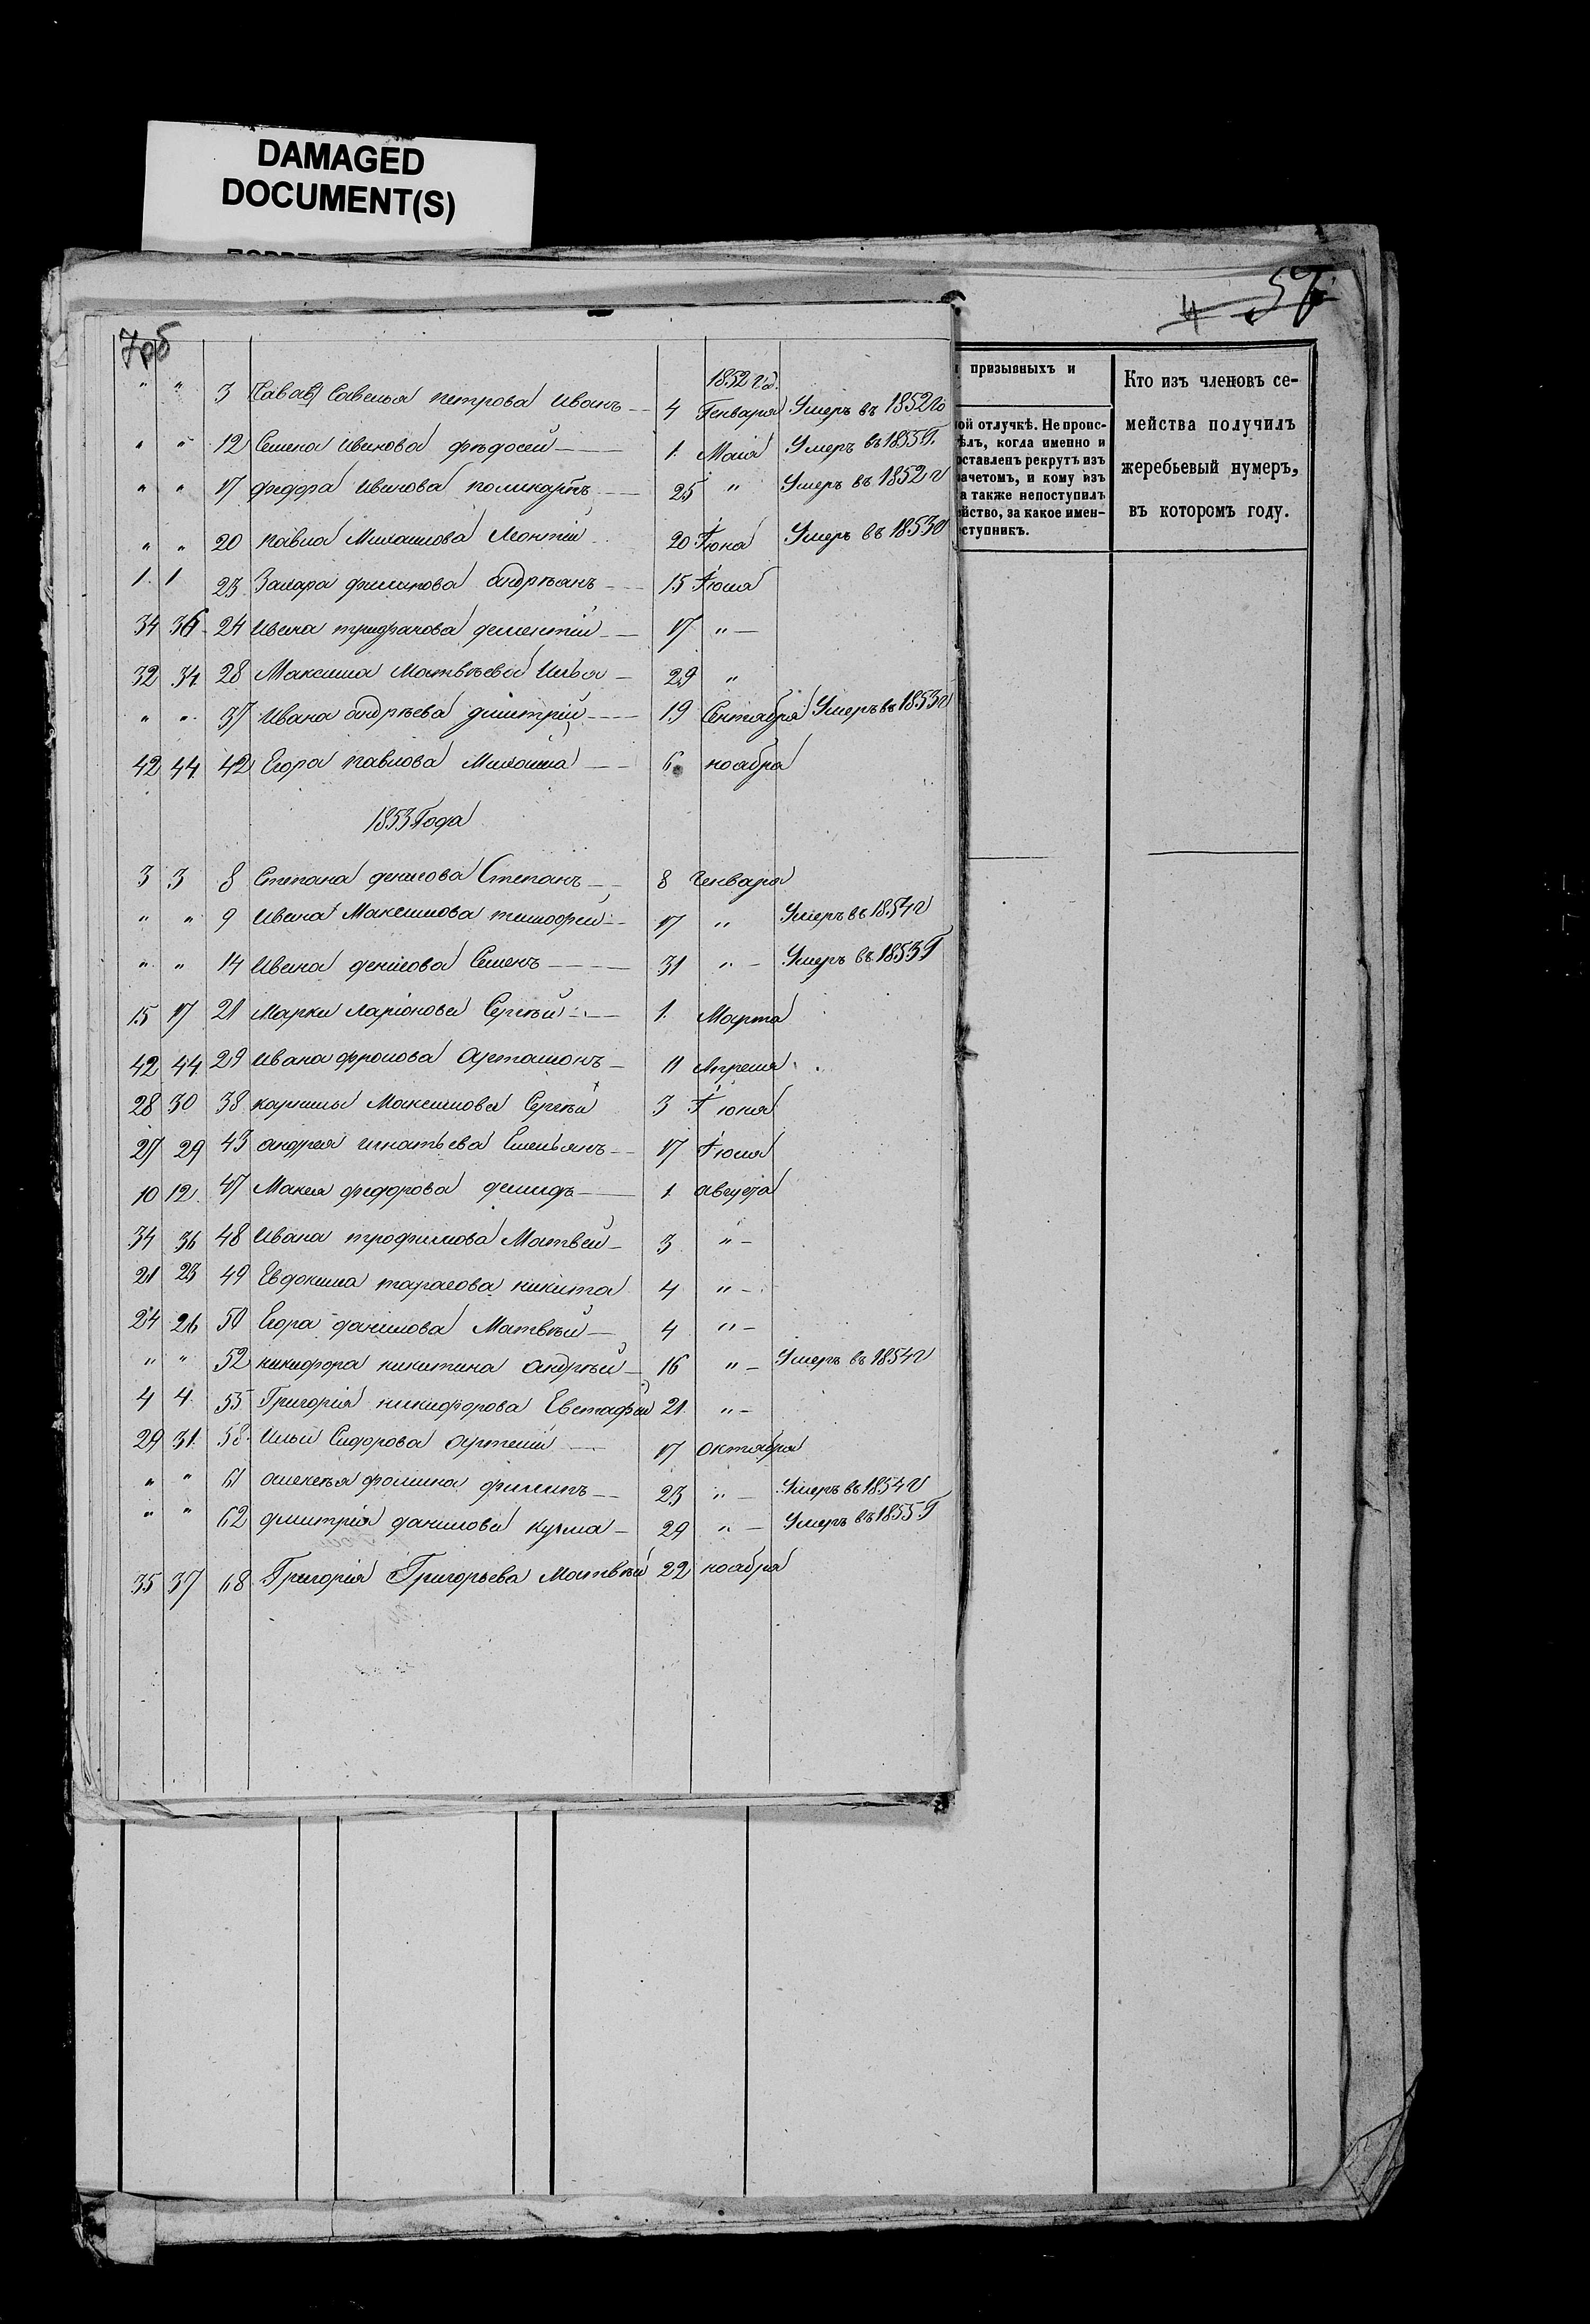 DAMAGED
DOCUMENT(S)
57
4
7об
призывныхъ и
Кто изъ членовъ се-
мейства получилъ
жеребьевый нумеръ,
въ которомъ году.
ой отлучкѣ. Не проис-
ѣлъ, когда именно и
ставленъ рекрутъ изъ
ачетомъ, и кому изъ
а также непоступилъ
ейство, за какое имен-
ступникъ.
1852 год.
" " 3 Савелья петрова Иванъ 4 Генваря Умеръ въ 1852го
" " 12 Семена Иванова Фѣдосей 1. Маія Умеръ въ 1855 Г.
" " 17 федора Иванова поликарпъ 25 " Умеръ въ 1852 г
" " 20 павла Михаилова Леонтій 20 Іюна Умеръ въ 1853 г
1. 1 23. Захара филипова андрѣанъ 15 Іюля
34 36 24 Ивана трифанова дементій 17 " —
32 34 28 Максима Матвѣева Илья 29 "
" " 37 Ивана андрѣева димтрій 19 Сентября Умеръ въ 1853г
42 44 42 Егора павлова Михаила 6 ноября
1853 Года
3 3 8 Степана денисова Степанъ 8 Генваря
" " 9 Ивана Максимова тимофей 17 " Умеръ въ 1854 г
" " 14 Ивана денисова Семенъ 31 " — Умеръ въ 1853 Г
15 17 21 Марка ларіонова Сергѣй 1. Марта
42 44 29 Ивана фролова Артамонъ 11 Апреля
28 30 38 карнилы Максимова Сергѣй 3 Іюня
27 29 43 андрея игнатьева Емельянъ 17 Іюля
10 12. 47 Макея федорова демидъ 1. августа
34 36 48 Ивана трофимова Матвей 3 " —
21 23 49 Евдокима тарасова никита 4 " —
24 26 50 Егора данилова Матвѣй 4 " —
" " 52 никифора никитина андрѣй 16 " — Умеръ въ 1854 г
4 4. 55 Григорія никифорова Евстафѣй 21. " —
29 31. 58. Ильи Сидорова артемій 17 октября
" " 61 алексѣя фомина филипъ 23 " — Умеръ въ 1854 г
" " 62 дмитрія данилова кузма 29 " — Умеръ въ 1855 Г
35 37 68 Григорія Григорьева Матвѣй 22 ноября